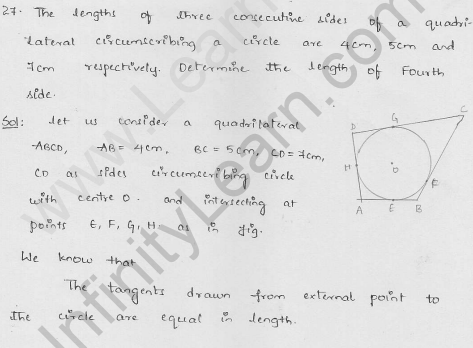 27. The lengths of three consecutive sides of a quadri-
lateral circumscribing a circle are 4cm, 5cm and
7cm respectively. Determine the length of Fourth
side.
Sol: let us consider a quadrilateral
ABCD, AB = 4cm, BC = 5cm, CD = 7cm,
CD as sides circumscribing circle
with centre O. and intersecting at
points E, F, G, H as in fig.
We know that
The tangents drawn from external point to
the circle are equal in length.
D G C
H O F
A E B
www.InfinityLearn.com